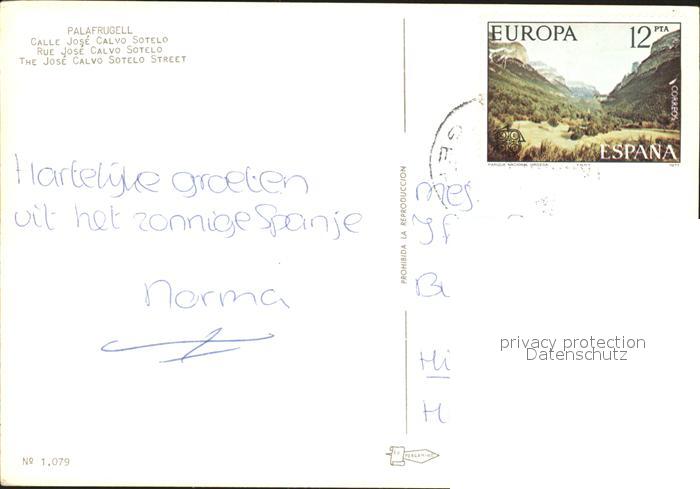 PALAFRUGELL
CALLE JOSÉ CALVO SOTELO
RUE JOSÉ CALVO SOTELO
THE JOSÉ CALVO SOTELO STREET
EUROPA 12 PTA
CORREOS
ESPAÑA
PARQUE NACIONAL ORDESA
1977
Hartelijke groeten
uit het zonnige Spanje
Norma
PROHIBIDA LA REPRODUCCION
mej.
privacy protection
Datenschutz
Nº 1.079
PERGAMINO